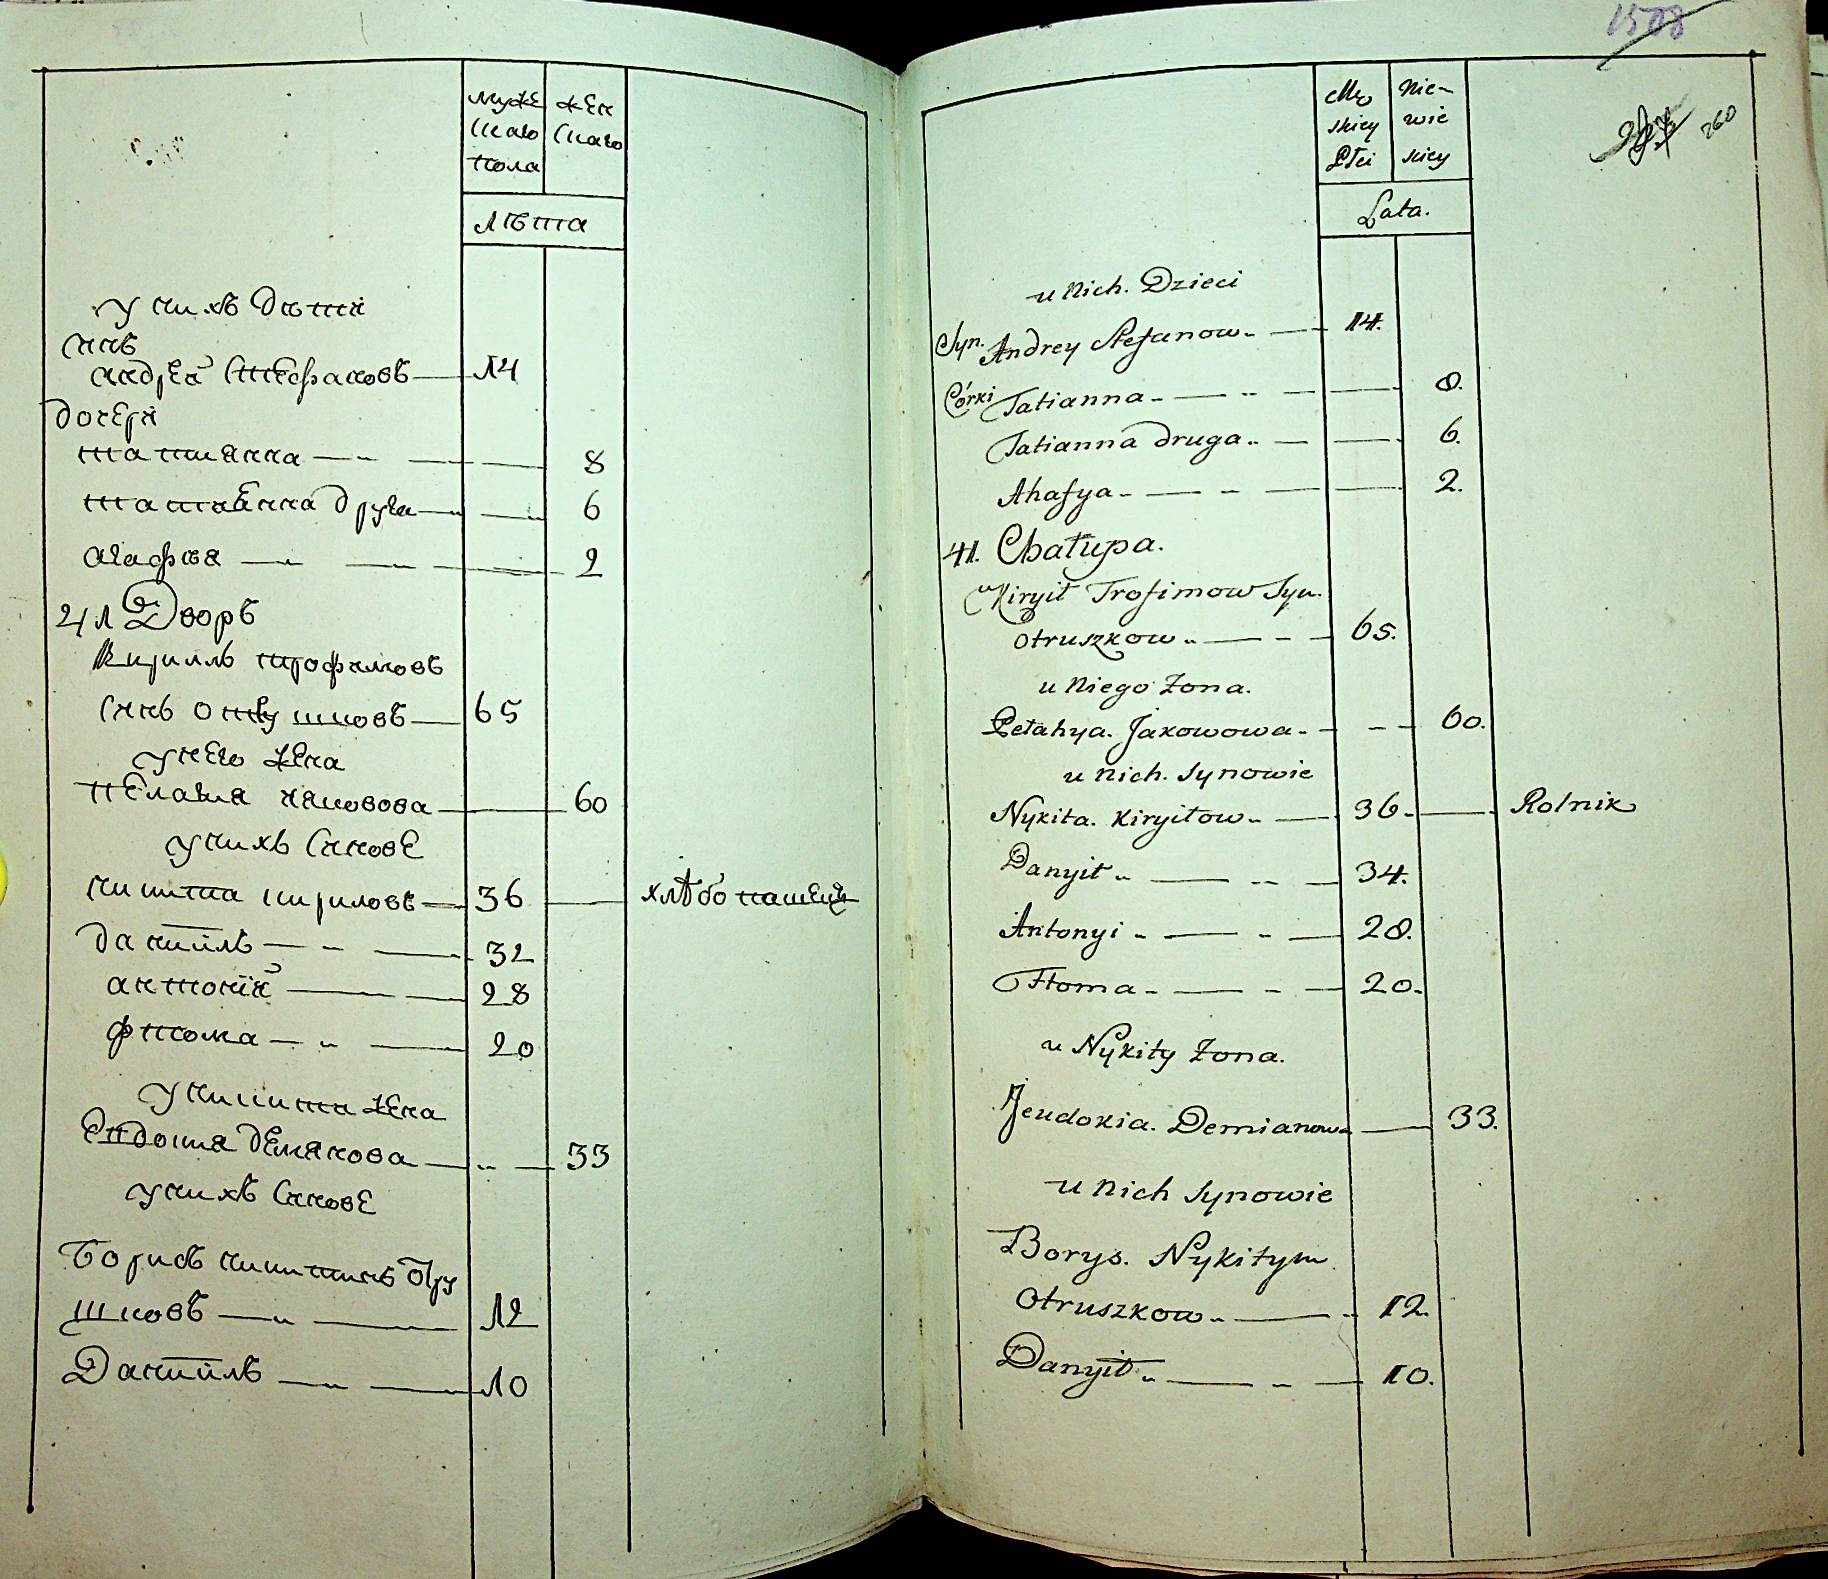 муже
скаго
пола
жен
скаго
лѣта
у нихъ дѣти
синъ
андрей Стефановъ 14
дочери
татиянна 8
татиянна друга 6
агафия 2
41 Дворъ
Кирилъ трофимовъ
синъ отрушковъ 65
у него жена
пелагия яковова 60
у нихъ синове
никита кириловъ 36 хлѣбопашецъ
даниилъ 32
антоній 28
фтома 20
у никити жена
Евдокия демянова 33
у нихъ синове
Борисъ никитинъ Отру
шковъ 12
Даниилъ 10
1508
260
Mę
skiey
Płci
Nie-
wie
skiey
Lata.
u Nich. Dzieci
Syn. Andrey Stefanow 14.
Córki Tatianna 8.
Tatianna druga 6.
Ahafya 2.
41. Chałupa.
Kiryił Trofimow Syn.
otruszkow 65.
u Niego Żona.
Pelahya. Jakowowa 60.
u Nich. Synowie
Nykita. Kiryiłow 36. Rolnik
Danyił 34.
Antonyi 28.
Ftoma 20.
u Nykity Żona.
Jeudokia. Demianowa 33.
u Nich Synowie
Borys. Nykityn
Otruszkow 12.
Danyił 10.